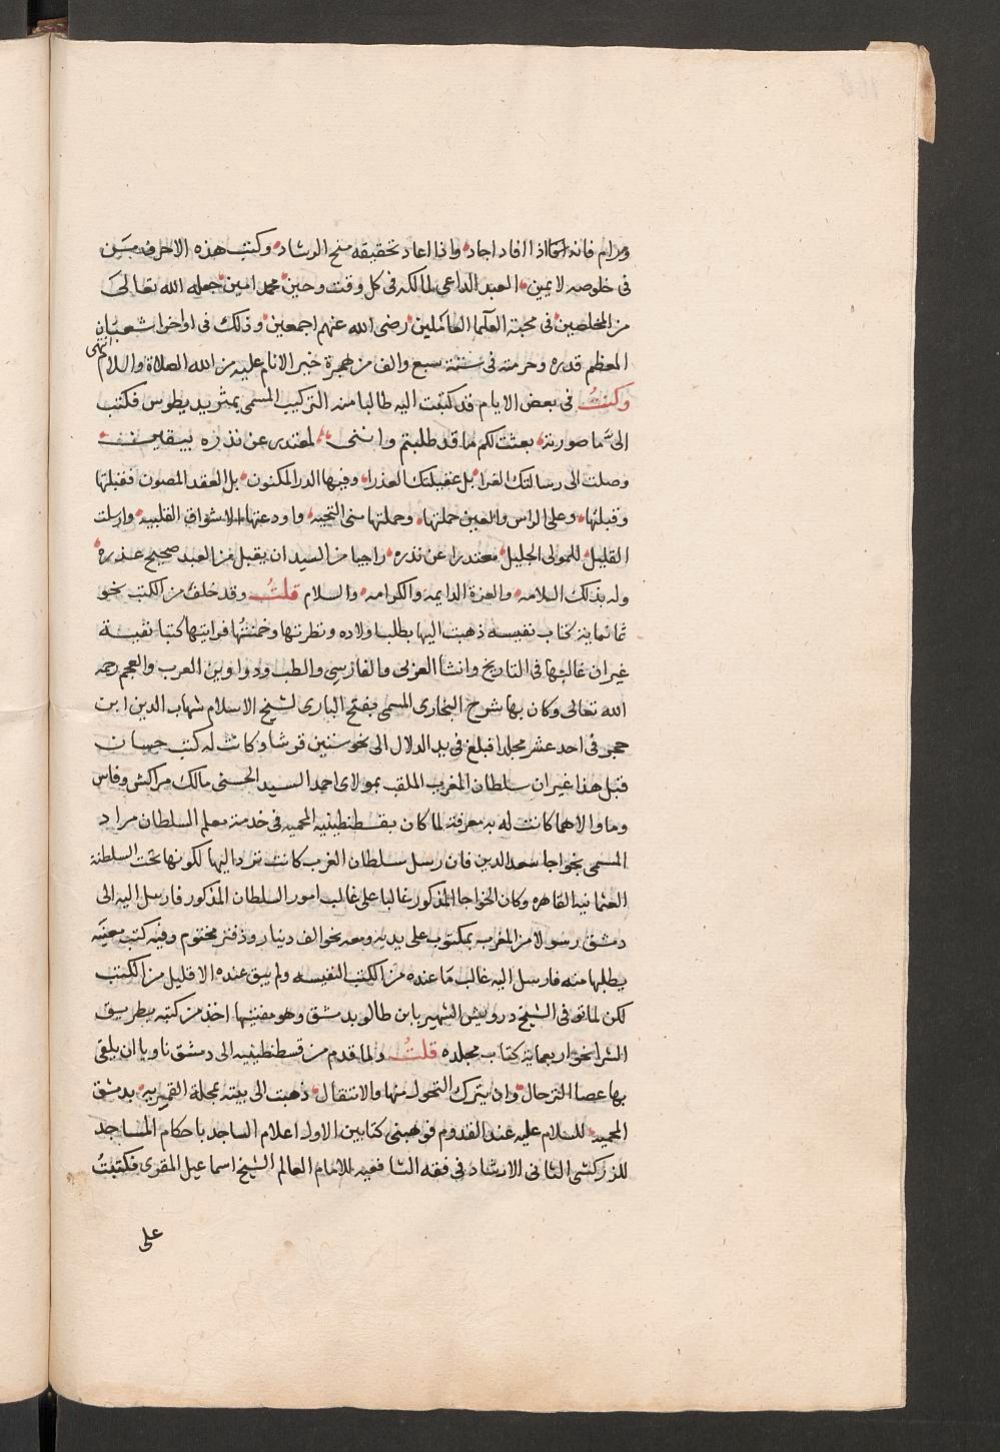 ورام فانه اذا افاد اجاد واذا اعاد تحقيقه منح الرشاد وكتب هذه الاحرف من
فى خلوصه لا يمين العبد الداعى لمالكه فى كل وقت وحين محمد امين جعله الله تعالى
من المخلصين فى محبة العلما العاملين رضى الله عنهم اجمعين وذلك فى اواخر شعبان
المعظم قدره وحرمته فى سنة سبع والف من هجرة خير الانام عليه من الله الصلاة والسلام انتهى
وكنتُ فى بعض الايام قد كتبت اليه طالبا منه التركيب المسمى بمثريد يطوس فكتب
الىّ ما صورته بعثت لكم ما قد طلبتم واننى لمعتدر عن نذره بيقين
وصلت الى رسالتك الغرا بل عقيلتك العذرا وفيها الدر المكنون بل العقد المصون فقبلتها
وقبلتها وعلى الراس والعين حملتها وحملتها سنى التحيه واودعتها الاشواق القلبيه وارسلت
القليل للمولى الجليل معتدرا عن نذره راجيا من السيد ان يقبل من العبد صحيح عذره
وله بذلك السلامه والعزة الدايمه والكرامه والسلام قلتُ وقد خلف من الكتب نحو
ثمانماية كتاب نفيسه ذهبت اليها بطلب اولاده ونظرتها وخمنتها فرايتها كتبا نفيسة
غير ان غالبها فى التاريخ وانشا العربى والفارسى والطب ودواوين العرب والعجم رحمه
الله تعالى وكان بها شرح البخارى المسمى بفتح البارى لشيخ الاسلام شهاب الدين ابن
حجر فى احد عشر مجلدا فبلغ فى يد الدلال الى نحو ستين قرشا وكانت له كتب حسان
قبل هذا غير ان سلطان المغرب الملقب بمولاى احمد السيد الحسنى مالك مراكش وفاس
وما والاهما كانت له به معرفة لما كان بقسطنطينيه المحميه فى خدمة معلم السلطان مراد
المسمى بخواجا سعد الدين فان رسل سلطان الغرب كانت ترد اليها لكونها تحت السلطنة
العثمانيه القاهره وكان الخواجا المذكور غالبا على غالب امور السلطان المذكور فارسل اليه الى
دمشق رسولا من المغرب بمكتوب على يديه ومعه نحو الف دينار ودفتر مختوم وفيه كتب معينه
يطلبها منه فارسل اليه غالب ما عنده من الكتب النفيسه ولم يبق عنده الا قليل من الكتب
لكن لما توفى الشيخ درويش الشهير بابن طالو بدمشق وهو مفتيها اخذ من كتبه بطريق
الشرا نحو اربعماية كتاب مجلده قلتُ ولما قدم من قسطنطينيه الى دمشق ناويا ان يلقى
بها عصا الترحال وان يترك التحول منها والانتقال ذهبت الى بيته بمحلة القيمريه بدمشق
المحميه للسلام عليه عند القدوم فوهبنى كتابين الاول اعلام الساجد باحكام المساجد
للزركشى الثانى الارشاد فى فقه الشافعيه للامام العالم الشيخ اسماعيل المقرى فكتبتُ
على